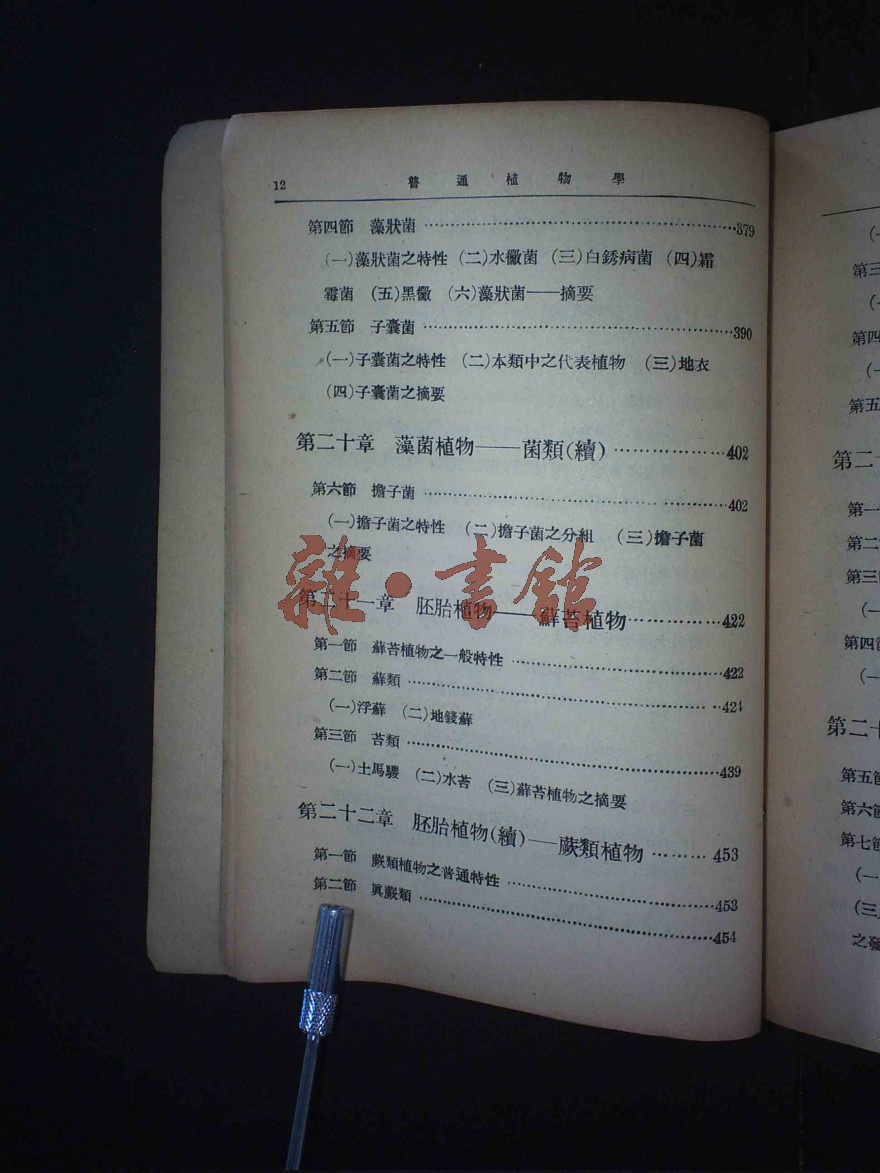 12 普通植物學
第四節 藻狀菌 ……379
(一)藻狀菌之特性 (二)水黴菌 (三)白銹病菌 (四)霜
霉菌 (五)黑黴 (六)藻狀菌——摘要
第五節 子囊菌 ……390
(一)子囊菌之特性 (二)本類中之代表植物 (三)地衣
(四)子囊菌之摘要
第二十章 藻菌植物——菌類(續) ……402
第六節 擔子菌 ……402
(一)擔子菌之特性 (二)擔子菌之分組 (三)擔子菌
之摘要
雜·書館
第二十一章 胚胎植物——蘚苔植物……422
第一節 蘚苔植物之一般特性 ……422
第二節 蘚類 ……424
(一)浮蘚 (二)地錢蘚
第三節 苔類 ……439
(一)土馬騣 (二)水苔 (三)蘚苔植物之摘要
第二十二章 胚胎植物(續)——蕨類植物 ……453
第一節 蕨類植物之普通特性 ……453
第二節 眞蕨類 ……454
(一
第三
(一
第四
(一
第五
第二十
第一
第二
第三
(一
第四
(一
第二十
第五節
第六節
第七節
(一
(三
之發